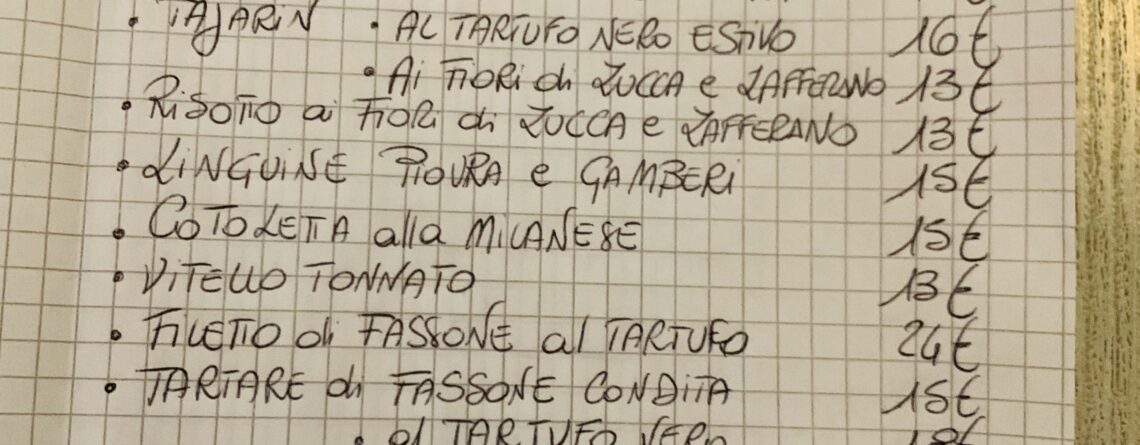 • TAJARIN • AL TARTUFO NERO ESTIVO 16€
• Ai FIORi di ZUCCA e ZAFFERANO 13€
• RiSOTTO ai FIORi di ZUCCA e ZAFFERANO 13€
• LiNGUiNE PIOVRA e GAMBERi 15€
• COTOLETTA alla MILANESE 15€
• ViTELLO TONNATO 13€
• FiLETTO di FASSONE al TARTUFO 24€
• TARTARE di FASSONE CONDiTA 15€
• al TARTUFO NERO 18€